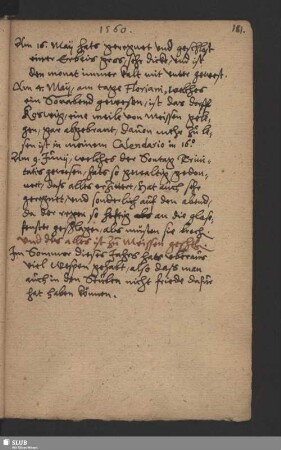 1560.
181.
Am 16. Maij hats geregnet und geschlost
einer Erbeis gros, sehr dicke, und ist
den monat immer kalt mit unter gewest.
Am 4. Maij, am tage Floriani, welches
ein Sonabend gewesen, ist das dorff
eine meile von Meissen gele-
gen, gar abgebrant, dauon mehr zu le-
sen ist in meinem Calendario in 16°.
Am 9. Junij, welches der Sontag Trini-
tatis gewesen, hats so gewaltig gedon-
nert, das alles erzittert, hat auch sehr
geregnet, und sonderlich auff den abend,
da der regen so hefftig an die glas-
fenster geschlagen, als müsten sie brech-
und das alles ist zu Meissen gescheen.
Im Sommer dieses Jahrs hats überaus
viel Wespen gehabt, also das man
auch in den Stuben nicht friede dafür
hat haben können.
SLUB